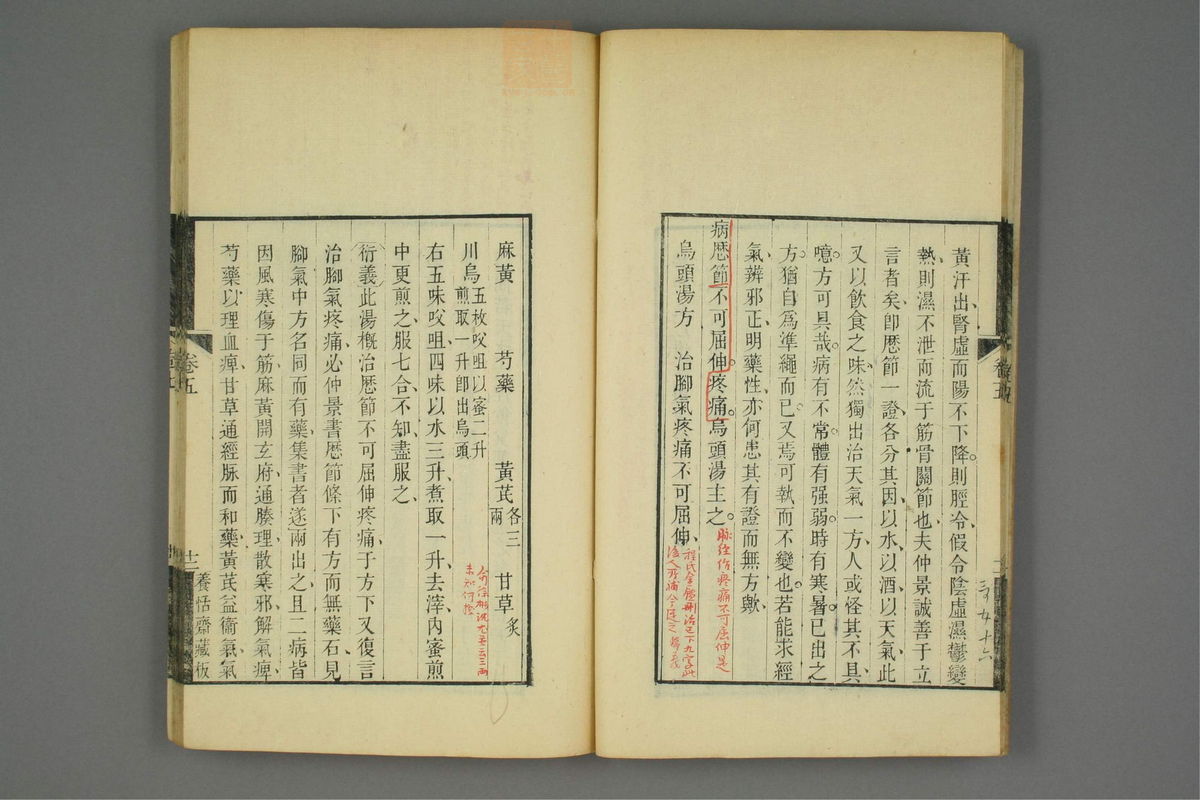 黃汗出、腎虛而陽不下降。則脛冷、假令陰虛濕鬱變
熱則濕不泄而流于筋骨關節也、夫仲景誠善于立
言者矣、卽歷節一證各分其因、以水、以酒、以天氣此
又以飲食之味、然獨出治天氣一方、人或怪其不具、
噫。方可具哉。病有不常。體有强弱。時有寒暑。已出之
方。猶自爲準繩而已。又焉可執而不變也。若能求經
氣辨邪正、明藥性、亦何患其有證而無方歟、
病歷節不可屈伸。疼痛。烏頭湯主之。
脉經作疼痛不可屈伸是
烏頭湯方　治腳氣疼痛不可屈伸、
程氏金鑑刪治已下九字此
後人所補今從之
卷五
麻黃　芍藥　黃芪各三兩　甘草炙
川烏五枚㕮咀以蜜二升
煎取一升卽出烏頭
右五味㕮咀四味以水三升煮取一升去滓、內蜜煎
中更煎之、服七合、不知盡服之、
未知何據
衍義此湯槪治歷節不可屈伸疼痛、于方下又復言
治腳氣疼痛、必仲景書歷節條下有方而無藥石、見
腳氣中方名同而有藥、集書者遂兩出之、且二病皆
因風寒傷于筋、麻黃開玄府通腠理、散寒邪、解氣痺、
芍藥以理血痺、甘草通經脉而和藥、黃芪益衞氣、氣
卷五
十二
養恬齋藏板